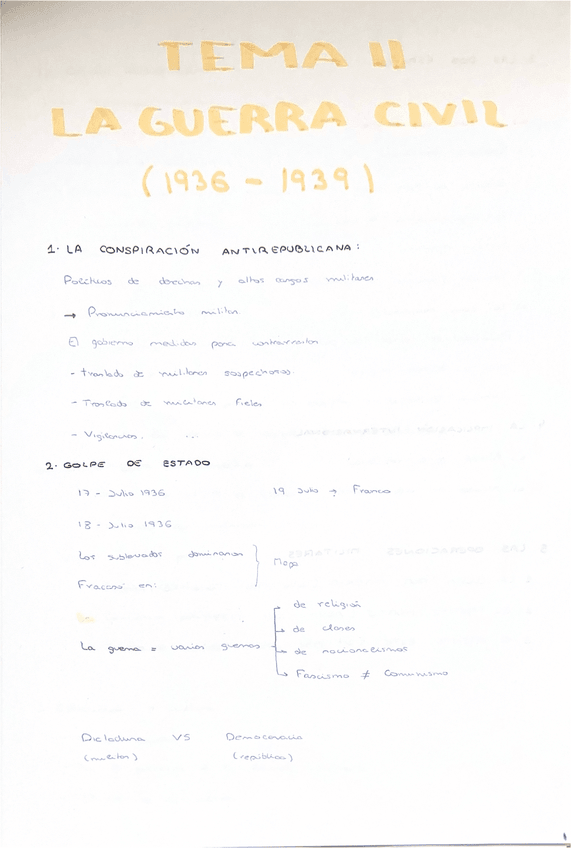 TEMA 11
LA GUERRA CIVIL
(1936 - 1939)
1. LA CONSPIRACIÓN ANTIREPUBLICANA:
Políticos de derechas y altos cargos militares
→ Pronunciamiento militar
El gobierno medidas para contrarrestar
- traslado de militares sospechosos.
- Traslado de militares fieles
- Vigilancias. ...
2. GOLPE DE ESTADO
17 - Julio 1936 19 Julio → Franco
18 - Julio 1936
Los sublevados dominaron
Mapa
Fracasó en:
de religión
de clases
La guerra = varias guerras
de nacionalismos
Fascismo ≠ Comunismo
Dictadura VS Democracia
(militar) (república)